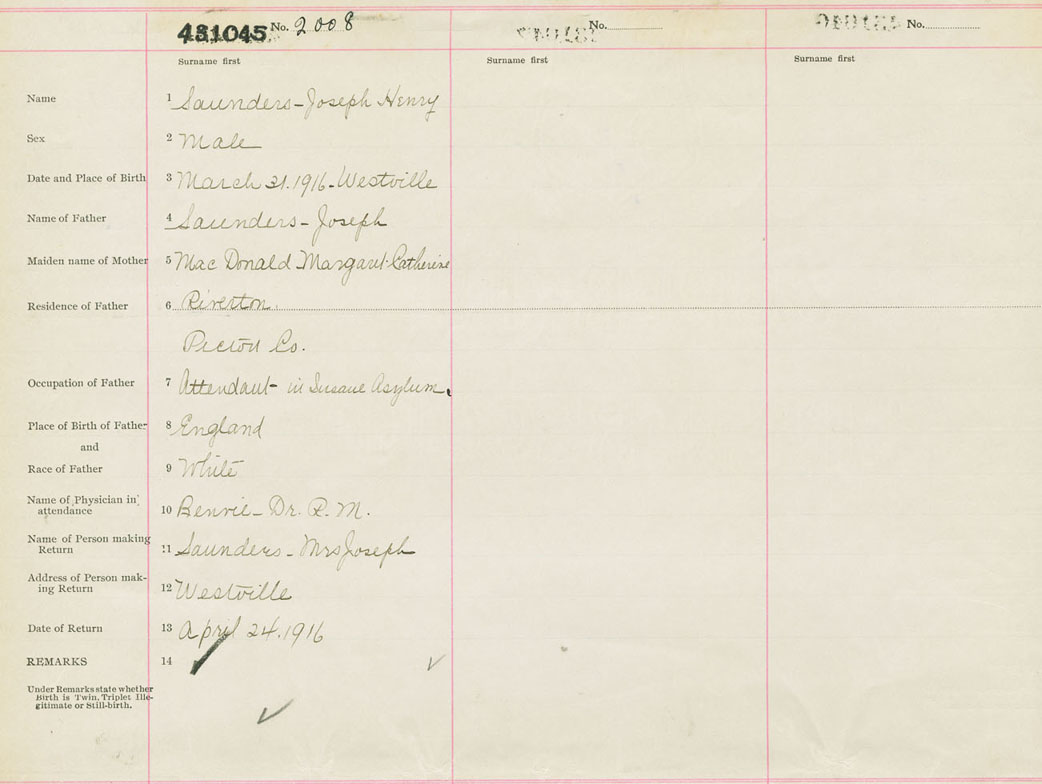 431045 No. 2008 No. No.
Surname first Surname first Surname first
Name 1 Saunders - Joseph Henry
Sex 2 Male
Date and Place of Birth 3 March 31. 1916 - Westville
Name of Father 4 Saunders - Joseph
Maiden name of Mother 5 Mac Donald Margaret Catherine
Residence of Father 6 Riverton.
Pictou Co.
Occupation of Father 7 Attendant - in Insane Asylum.
Place of Birth of Father 8 England
and
Race of Father 9 White
Name of Physician in
attendance 10 Benvie - Dr. R. M.
Name of Person making
Return 11 Saunders - Mrs Joseph
Address of Person mak-
ing Return 12 Westville
Date of Return 13 April 24. 1916
REMARKS 14
Under Remarks state whether
Birth is Twin, Triplet Ille-
gitimate or Still-birth.